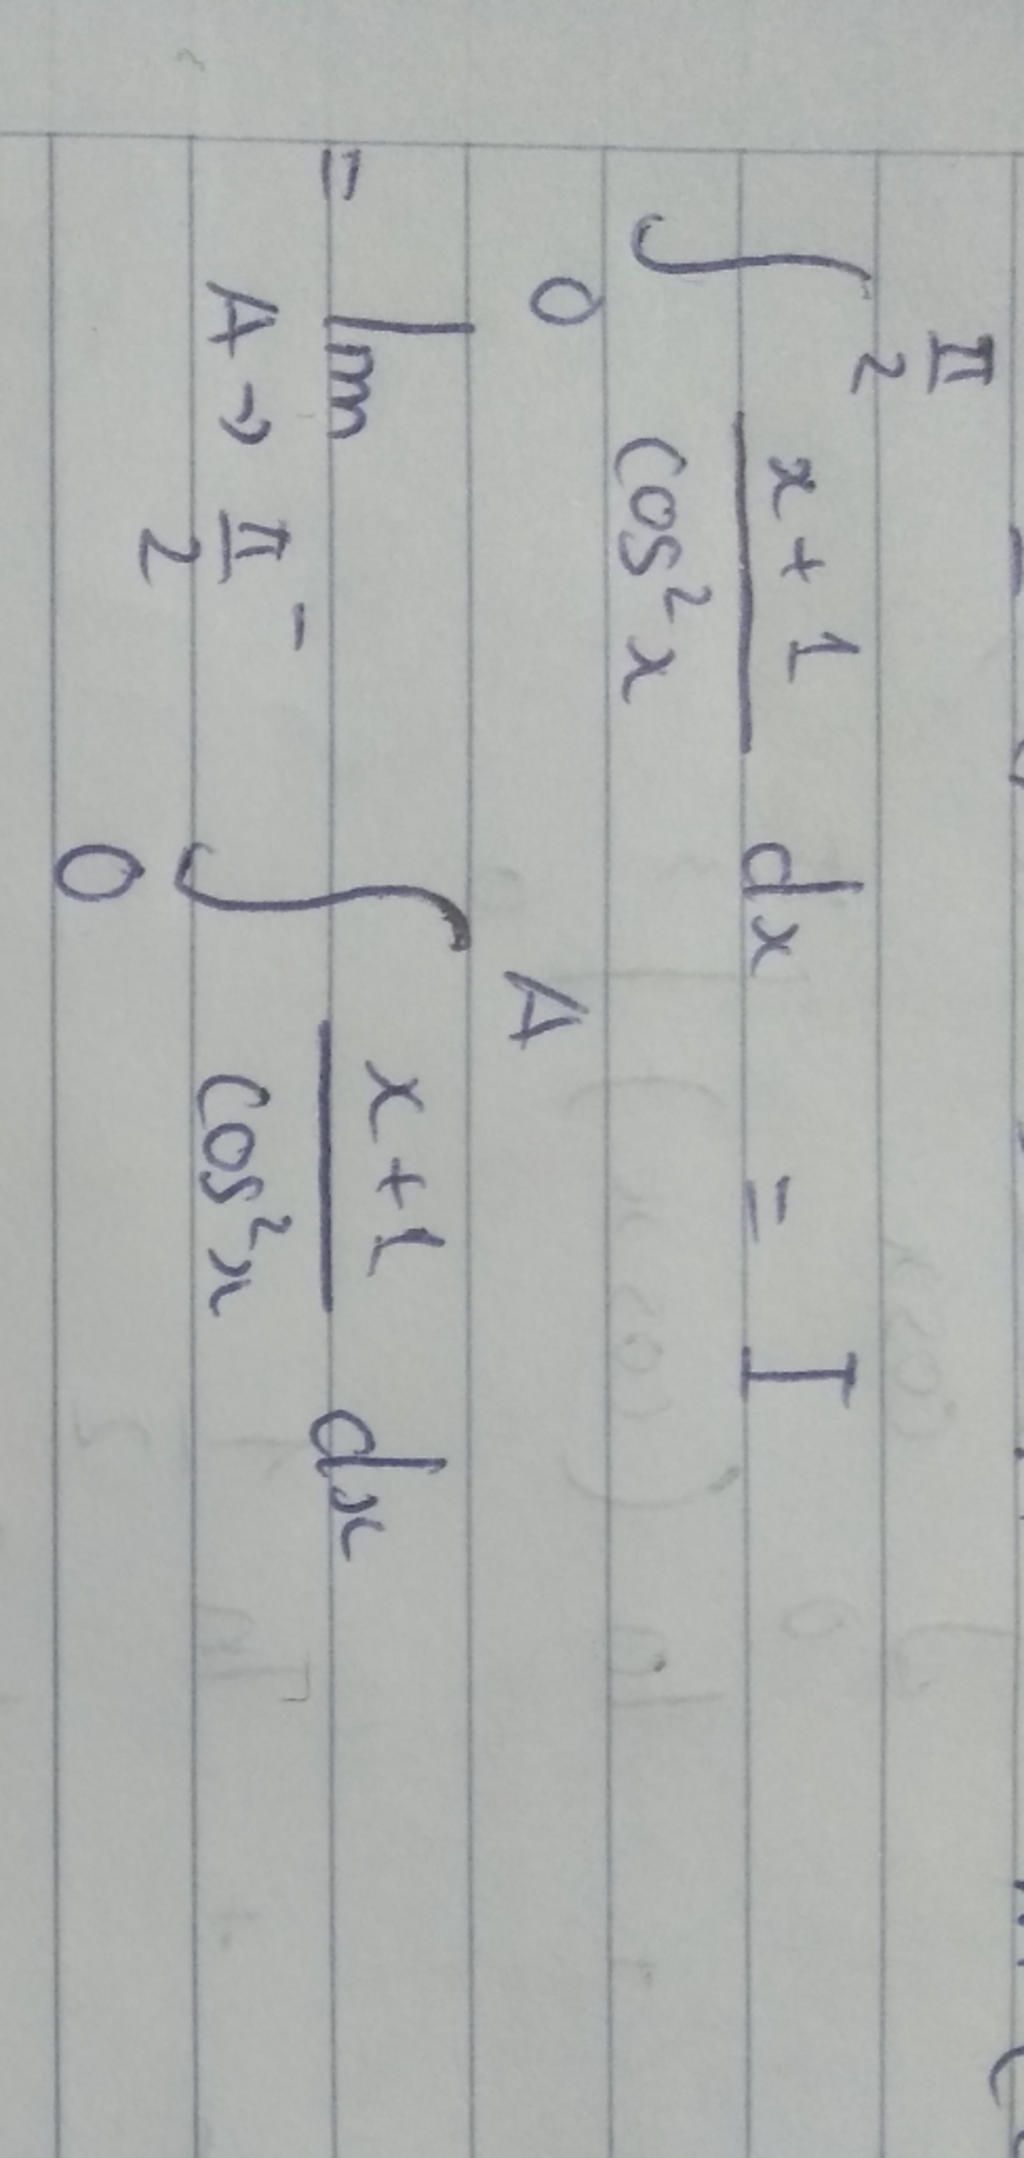 ∫₀^(π/2) (x+1)/(cos²x) dx = I
= lim A→π/2⁻ ∫₀^A (x+1)/(cos²x) dx